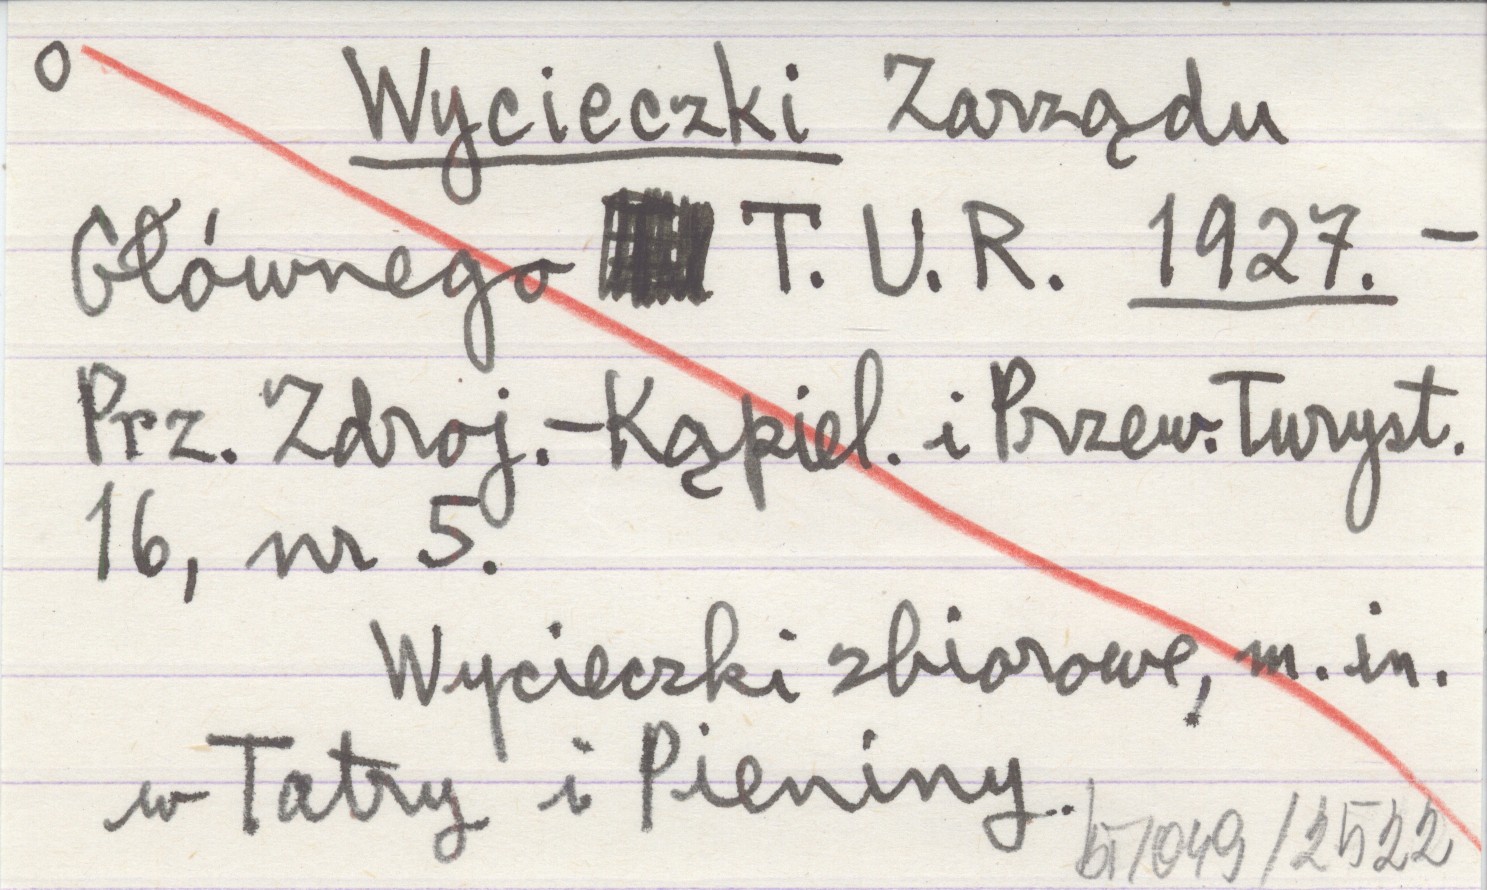 o Wycieczki Zarządu
Głównego T. U. R. 1927. -
Prz. Zdroj.-Kąpiel. i Przew. Turyst.
16, nr 5.
Wycieczki zbiorowe, m. in.
w Tatry i Pieniny.
/2522